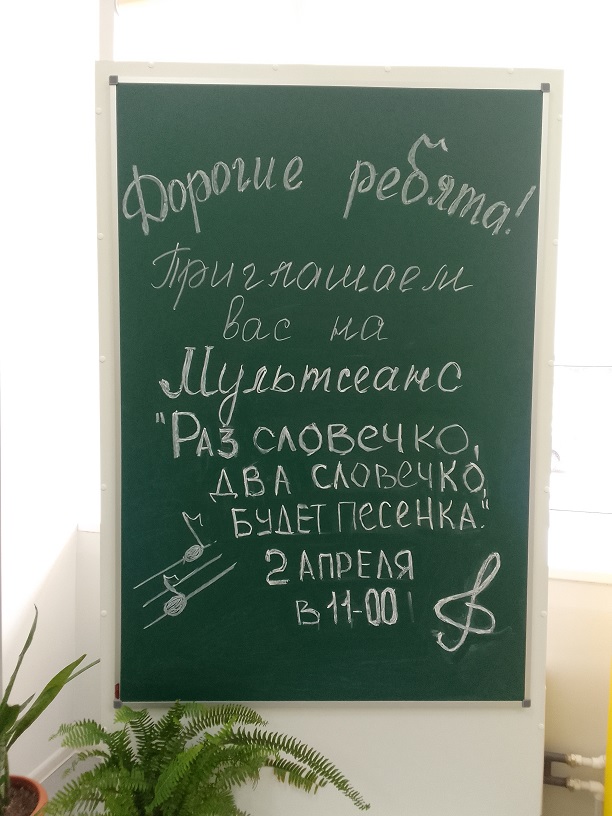 Дорогие ребята!
Приглашаем
вас на
Мультсеанс
"Раз словечко,
два словечко,
будет песенка."
2 апреля
в 11-00!